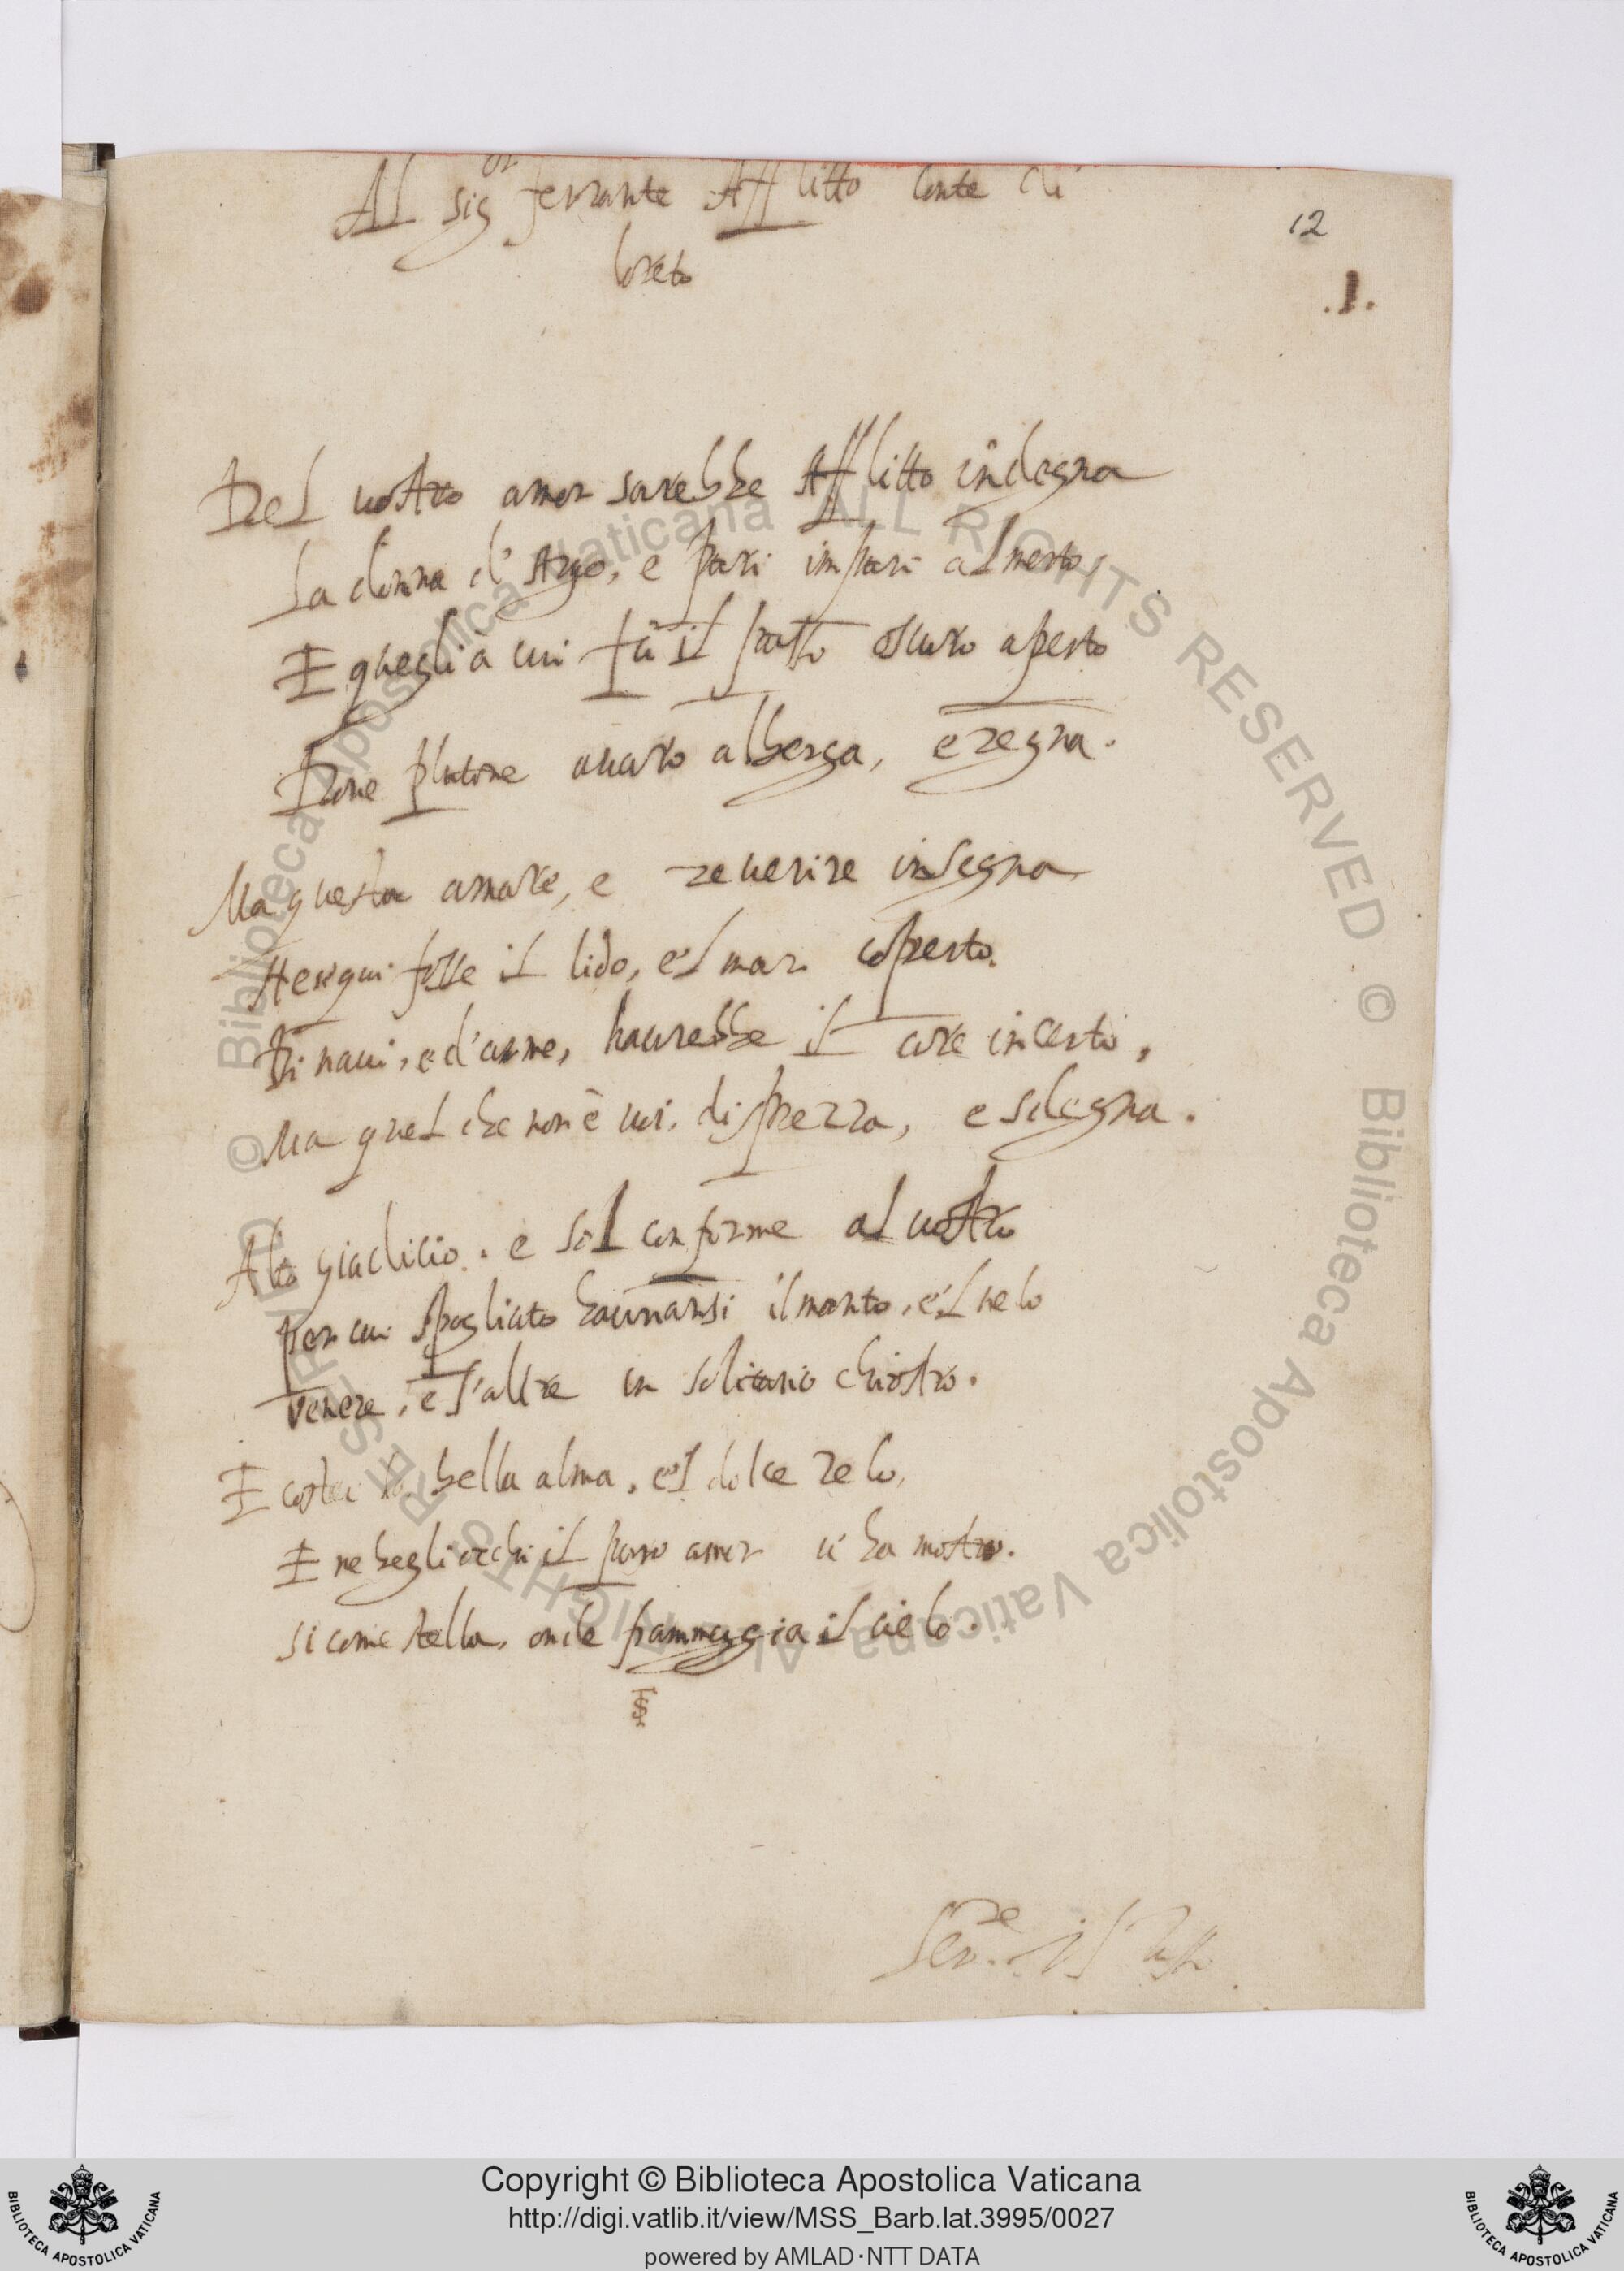 Al sig.or ferrante Afflitto Conte di
loreto
12
.1.
Del uostro amor sarebbe Afflitto indegna
La donna d'Argo, e pari impari al merto,
E quegli à cui fù il passo oscuro aperto
Doue plutone auaro alberga, e regna.
Ma questa amare, e reuerire insegna
fosse il lido, e'l mar coperto.
Di naui, e d'arme, haurebbe il core incerto,
Ma quel che non è uoi, disprezza, e sdegna.
Alto giudicio. e sol conforme al uostro
Per cui spogliato haurian il manto, e'l uelo
Venere, e l'altre in solitario chiostro.
E costei la bella alma, e'l dolce zelo,
E ne begli occhi il puro amor u'ha mostro.
Si come stella, onde fiammeggia il cielo.
il Tasso
© Biblioteca Apostolica Vaticana ALL RIGHTS RESERVED © Biblioteca Apostolica Vaticana ALL RIGHTS RESERVED
Copyright © Biblioteca Apostolica Vaticana
http://digi.vatlib.it/view/MSS_Barb.lat.3995/0027
powered by AMLAD·NTT DATA
BIBLIOTECA APOSTOLICA VATICANA
BIBLIOTECA APOSTOLICA VATICANA